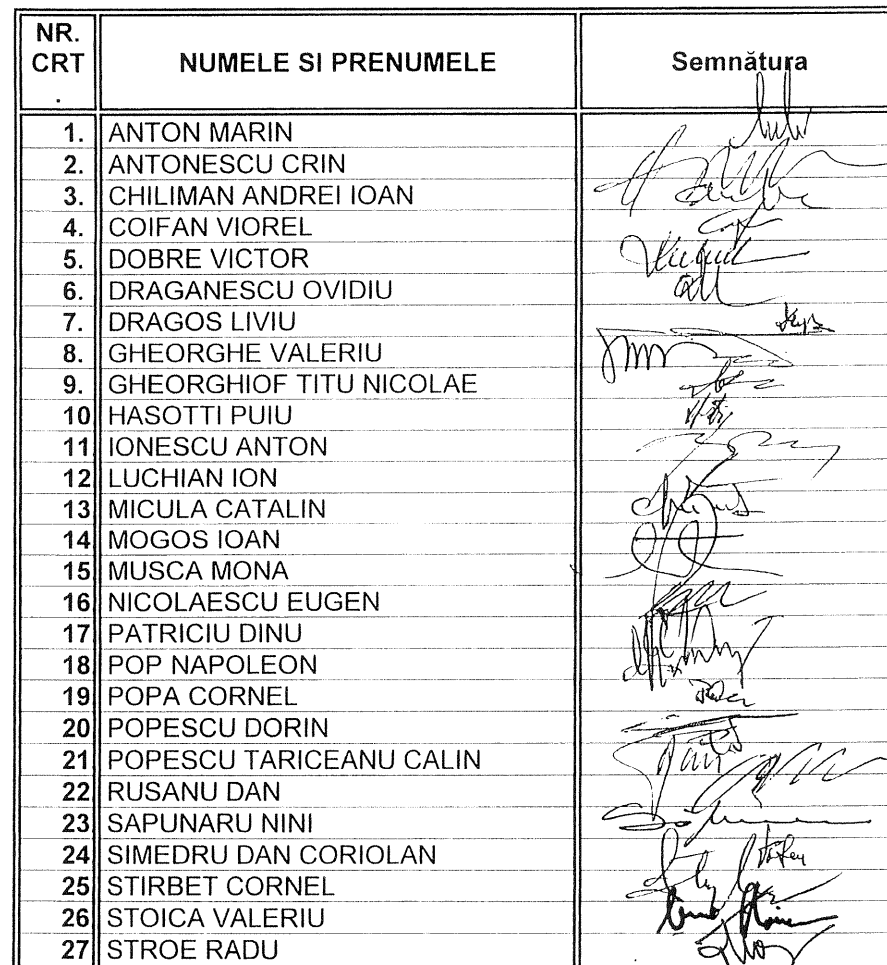 NR. CRT. NUMELE SI PRENUMELE Semnătura
1. ANTON MARIN
2. ANTONESCU CRIN
3. CHILIMAN ANDREI IOAN
4. COIFAN VIOREL
5. DOBRE VICTOR
6. DRAGANESCU OVIDIU
7. DRAGOS LIVIU
8. GHEORGHE VALERIU
9. GHEORGHIOF TITU NICOLAE
10 HASOTTI PUIU
11 IONESCU ANTON
12 LUCHIAN ION
13 MICULA CATALIN
14 MOGOS IOAN
15 MUSCA MONA
16 NICOLAESCU EUGEN
17 PATRICIU DINU
18 POP NAPOLEON
19 POPA CORNEL
20 POPESCU DORIN
21 POPESCU TARICEANU CALIN
22 RUSANU DAN
23 SAPUNARU NINI
24 SIMEDRU DAN CORIOLAN
25 STIRBET CORNEL
26 STOICA VALERIU
27 STROE RADU